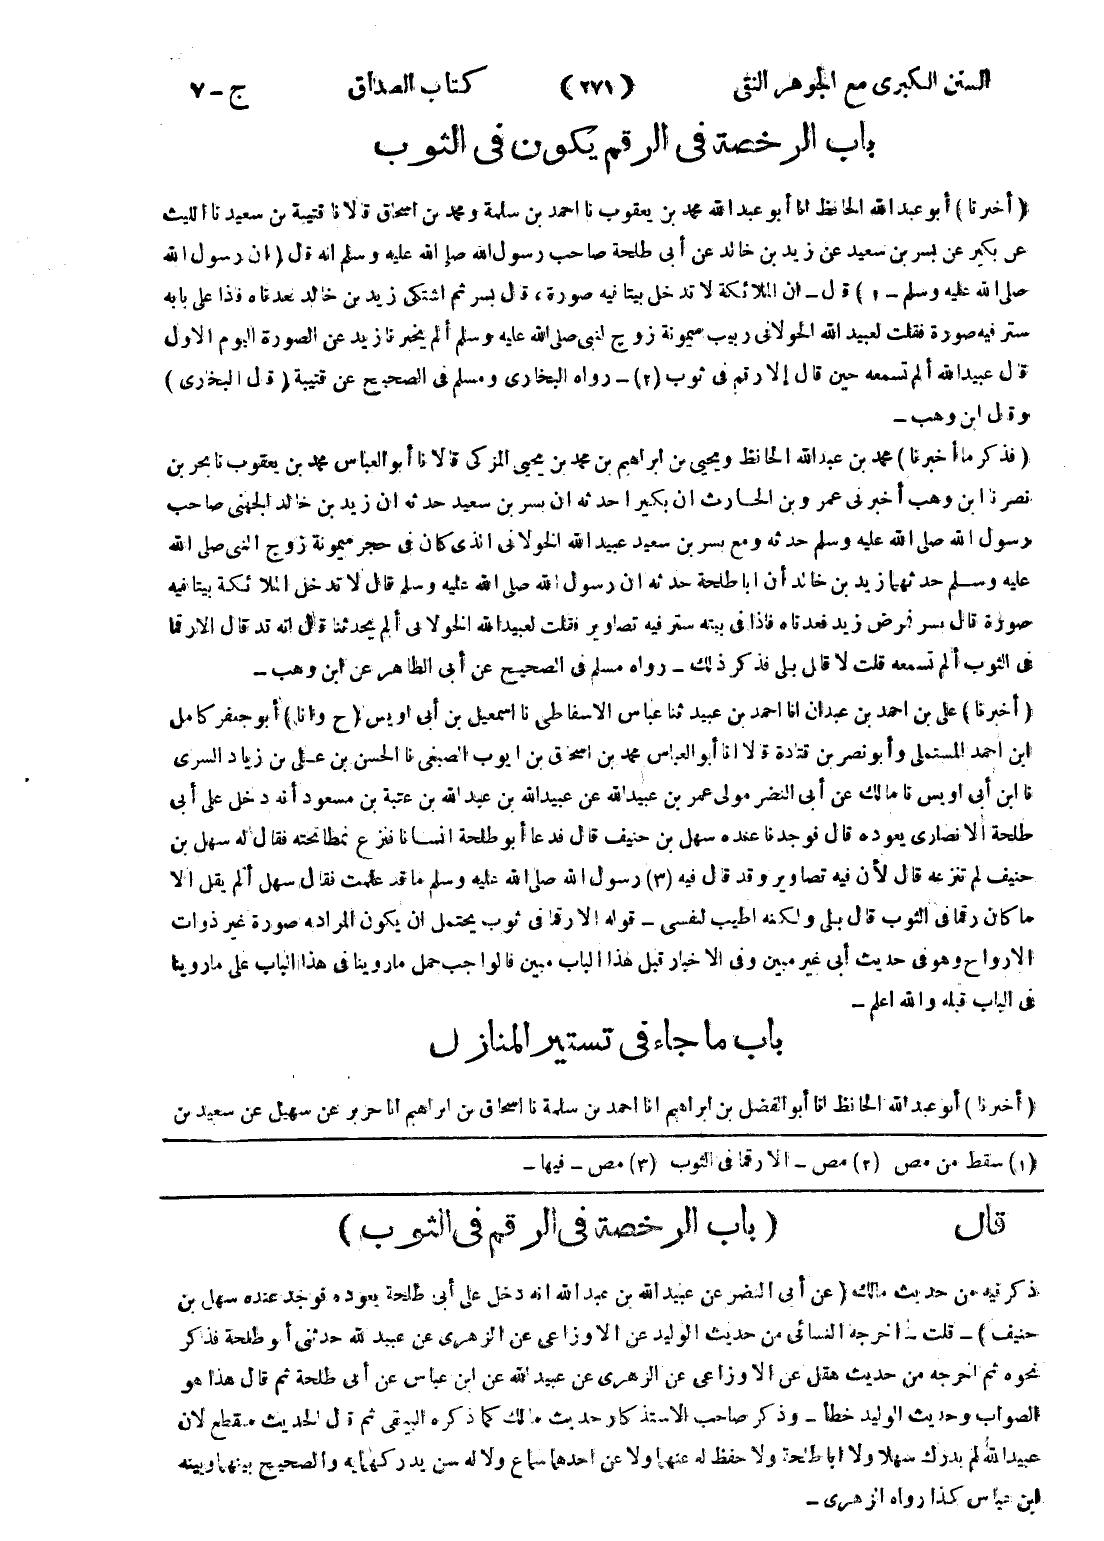 السنن الكبرى مع الجوهر النقى (٢٧١) كتاب الصداق ج - ٧
باب الرخصة فى الرقم يكون فى الثوب
(أخبرنا) أبو عبد الله الحافظ انا أبو عبد الله محمد بن يعقوب نا احمد بن سلمة ومحمد بن اسحاق قالا نا قتيبة بن سعيد نا الليث
عن بكير عن بسر بن سعيد عن زيد بن خالد عن أبى طلحة صاحب رسول الله صلى الله عليه وسلم انه قال (ان رسول الله
صلى الله عليه وسلم - ١) قال - ان الملائكة لا تدخل بيتا فيه صورة، قال بسر ثم اشتكى زيد بن خالد فعدناه فاذا على بابه
ستر فيه صورة فقلت لعبيد الله الخولانى ربيب ميمونة زوج النبى صلى الله عليه وسلم ألم يخبرنا زيد عن الصورة اليوم الاول
قال عبيد الله ألم تسمعه حين قال إلا رقم فى ثوب (٢) - رواه البخارى ومسلم فى الصحيح عن قتيبة (قال البخارى)
وقال ابن وهب -
(فذكر ما أخبرنا) محمد بن عبد الله الحافظ ويحيى بن ابراهيم بن محمد بن يحيى المزكى قالا نا أبو العباس محمد بن يعقوب نا بحر بن
نصر نا ابن وهب أخبرنى عمرو بن الحارث ان بكيرا حدثه ان بسر بن سعيد حدثه ان زيد بن خالد الجهنى صاحب
رسول الله صلى الله عليه وسلم حدثه ومع بسر بن سعيد عبيد الله الخولانى الذى كان فى حجر ميمونة زوج النبى صلى الله
عليه وسلم حدثهما زيد بن خالد أن ابا طلحة حدثه ان رسول الله صلى الله عليه وسلم قال لا تدخل الملائكة بيتا فيه
صورة قال بسر فمرض زيد فعدناه فاذا فى بيته ستر فيه تصاوير فقلت لعبيد الله الخولانى ألم يحدثنا قال انه قد قال الا رقما
فى الثوب ألم تسمعه قلت لا قال بلى فذكر ذلك - رواه مسلم فى الصحيح عن أبى الطاهر عن ابن وهب -
(أخبرنا) على بن احمد بن عبدان انا احمد بن عبيد ثنا عباس الاسفاطى نا اسمعيل بن أبى اويس (ح وانا) أبو جعفر كامل
ابن احمد المستملى وأبو نصر بن قتادة قالا انا أبو العباس محمد بن اسحاق بن ايوب الصبغى نا الحسن بن على بن زياد السرى
نا ابن أبى اويس نا مالك عن أبى النضر مولى عمر بن عبيد الله عن عبيد الله بن عبد الله بن عتبة بن مسعود أنه دخل على أبى
طلحة الانصارى يعوده قال فوجدنا عنده سهل بن حنيف قال فدعا أبو طلحة انسانا فنزع نمطا تحته فقال له سهل بن
حنيف لم تنزعه قال لأن فيه تصاوير وقد قال فيه (٣) رسول الله صلى الله عليه وسلم ما قد علمت فقال سهل ألم يقل الا
ما كان رقما فى الثوب قال بلى ولكنه اطيب لنفسى - قوله الا رقما فى ثوب يحتمل ان يكون المراد به صورة غير ذوات
الارواح وهو فى حديث أبى غير مبين وفى الاخبار قبل هذا الباب مبين فالواجب حمل ما روينا فى هذا الباب على ما روينا
فى الباب قبله والله اعلم -
باب ما جاء فى تستير المنازل
(أخبرنا) أبو عبد الله الحافظ انا أبو الفضل بن ابراهيم انا احمد بن سلمة نا اسحاق بن ابراهيم انا جرير عن سهيل عن سعيد بن
(١) سقط من مص (٢) مص - الا رقما فى الثوب (٣) مص - فيها -
قال (باب الرخصة فى الرقم فى الثوب)
ذكر فيه من حديث مالك (عن أبى النضر عن عبيد الله بن عبد الله انه دخل على أبى طلحة يعوده فوجد عنده سهل بن
حنيف) - قلت - اخرجه النسائى من حديث الوليد عن الاوزاعى عن الزهرى عن عبيد الله حدثنى أبو طلحة فذكر
نحوه ثم اخرجه من حديث هقل عن الاوزاعى عن الزهرى عن عبيد الله عن ابن عباس عن أبى طلحة ثم قال هذا هو
الصواب وحديث الوليد خطأ - وذكر صاحب الاستذكار حديث مالك كما ذكره البيهقى ثم قال الحديث منقطع لان
عبيد الله لم يدرك سهلا ولا ابا طلحة ولا حفظ له عنهما ولا عن احدهما سماع ولا له سن يدركهما به والصحيح بينهما وبينه
ابن عباس كذا رواه الزهرى -